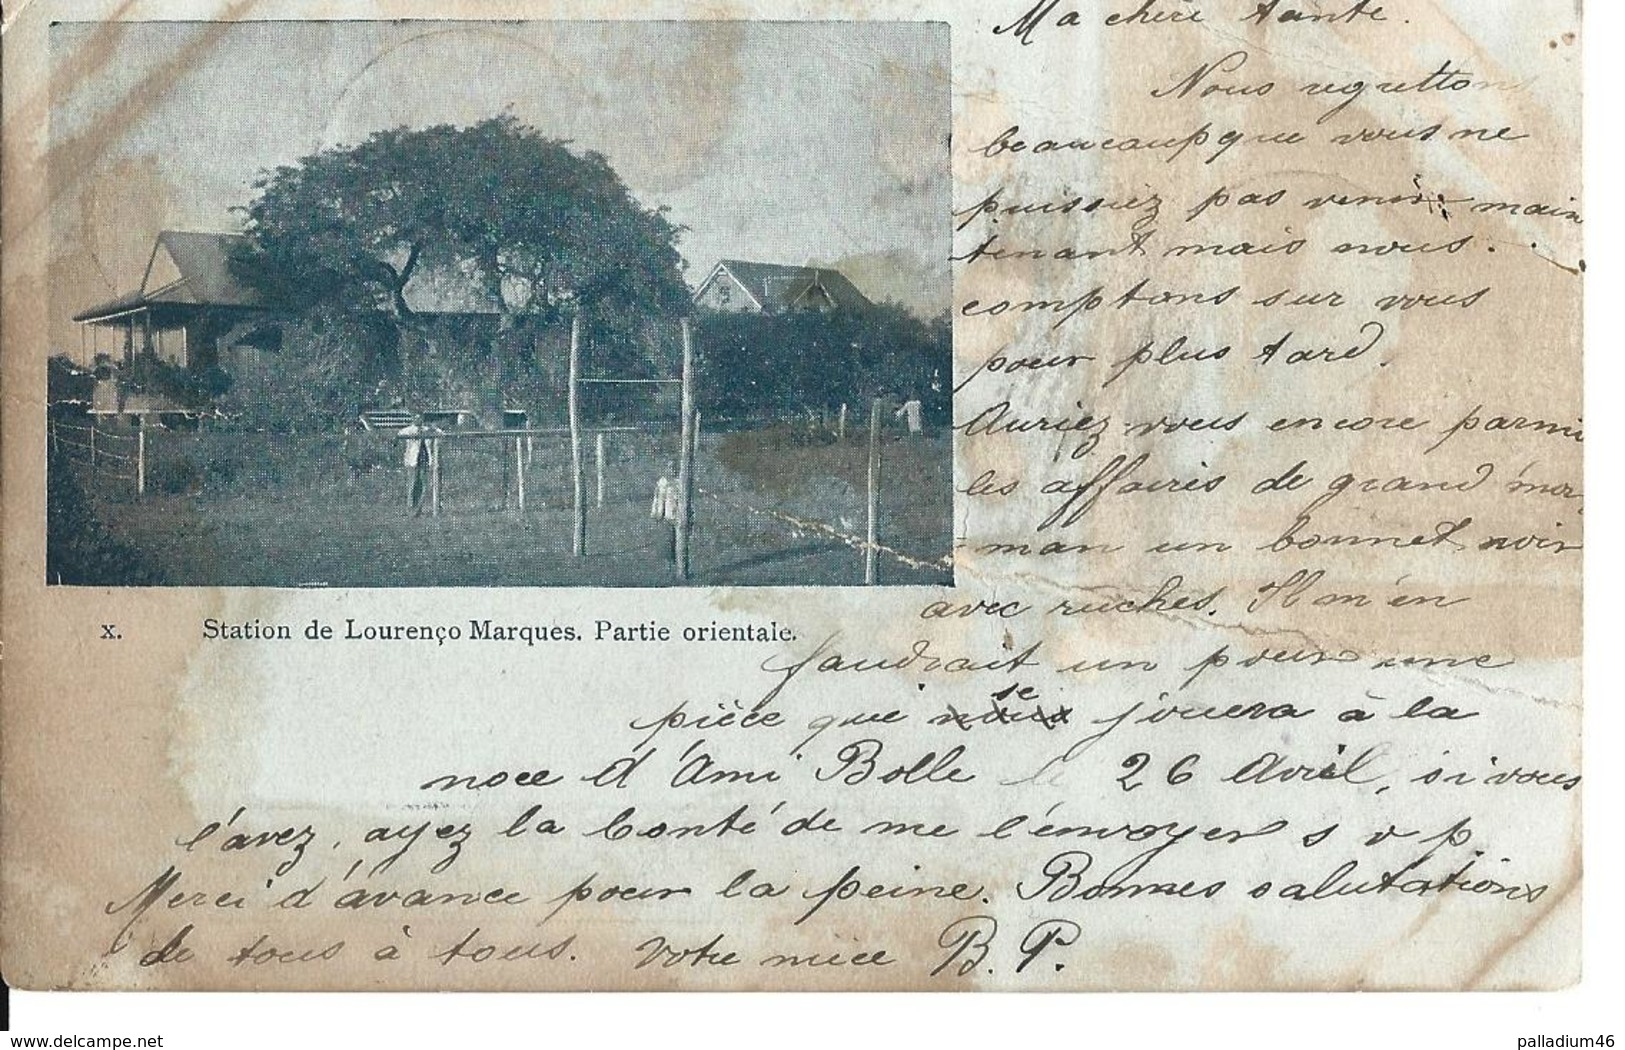 Ma chère tante.
Nous regrettons
beaucoup que vous ne
puissiez pas venir main
tenant mais nous
comptons sur vous
pour plus tard.
Auriez-vous encore parmi
les affaires de grand'mer
man un bonnet noir
avec ruches. Il m'en
faudrait un pour une
pièce que nous se jouera à la
noce d'Ami Bolle le 26 Avril, si vous
l'avez, ayez la bonté de me l'envoyer s v p.
Merci d'avance pour la peine. Bonnes salutations
de tous à tous. Votre nièce B. P.
x. Station de Lourenço Marques. Partie orientale.
delcampe.net
palladium46